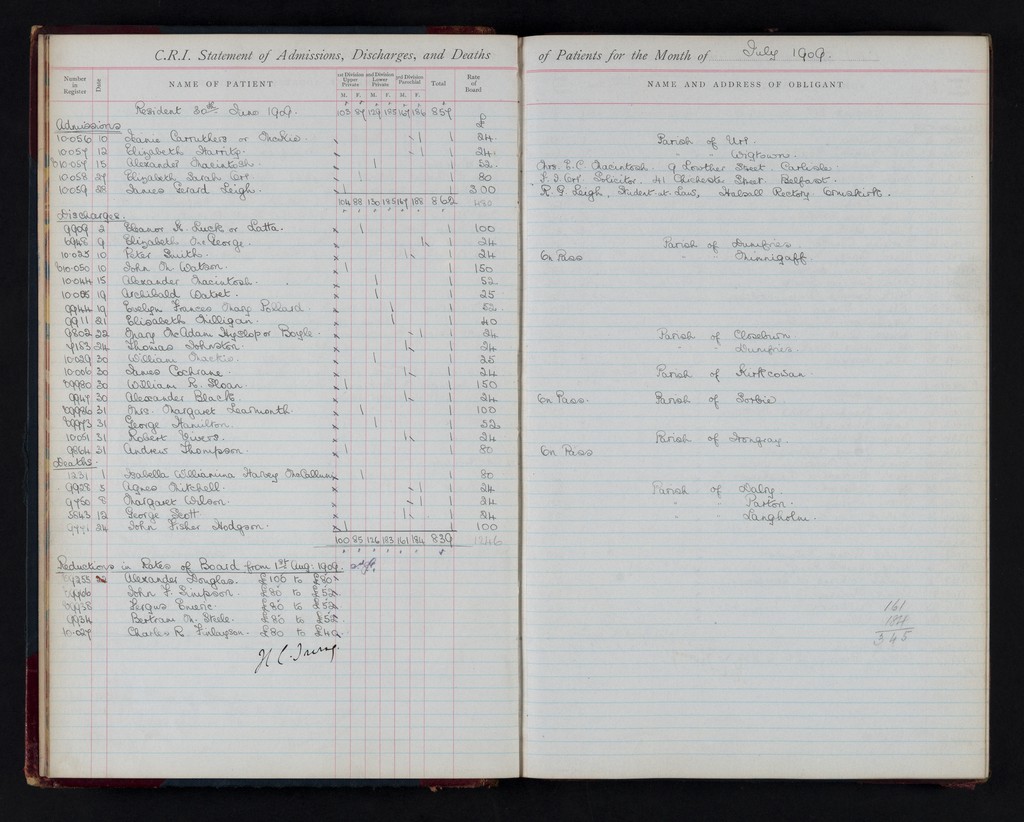 C.R.I. Statement of Admissions, Discharges, and Deaths
of Patients for the Month of July 1909.
Number in Register Date NAME OF PATIENT 1st Division Upper Private 2nd Division Lower Private 3rd Division Parochial Total Rate of Board
NAME AND ADDRESS OF OBLIGANT
M. F. M. F. M. F.
Resident 30th June 1909. 103 87 129 185 167 186 857
Admissions £
10056 10 Jeanie Carruthers or Mackie 1 24 Parish of Urr
10057 12 Elizabeth 1 24 " " Wigtown
10057 15 Alexander Macintosh 1 52 Mrs. E.C. Macintosh 9 Lowther Street Carlisle
10058 27 Elizabeth Sarah Orr 1 80 Orr Solicitor 41 Chichester Street Belfast
10059 28 James Gerard Leigh 1 300 R. G Leigh, Student-at-Law, Halsall Rectory Ormskirk
104 88 130 185 167 188 862 480
Discharges
9909 2 Eleanor R. Luck or Latta 1 100
6948 9 Elizabeth McGeorge 1 24 Parish of Dumfries
10025 10 Peter Smith 1 24 On Pass " " Minnigaff
10050 10 John M. Watson 1 150
10044 15 Alexander Macintosh 1 52
10055 19 Archibald 1 25
9944 19 Evelyn Frances Mary Pollard 1 52
9911 21 Elizabeth Milligan 1 40
9802 22 Mary McAdam Hyslop or Boyle 1 24 Parish of Closeburn
7183 24 Thomas Johnston 1 24 " " Dumfries
10029 30 William Mackie 1 25
10006 30 James Cochrane 1 24 Parish of Kirkcowan
9980 30 William R. Sloan 1 150
9947 30 Alexander Black 1 24 On Pass Parish of Sorbie
9996 31 Mrs. Margaret Learmonth 1 100
9993 31 George Hamilton 1 52
10051 31 Robert Rivers 1 24 Parish of Irongray
9864 31 Andrew Thompson 1 80 On Pass
Deaths
1231 1 Isabella Williamina Harvey McCallum 1 80
9928 3 Agnes Mitchell 1 24 Parish of Dalry
9750 8 Margaret Wilson 1 24 " " Parton
3543 12 George Scott 1 24 " " Langholm
24 John Fisher Hodgson 1 100
100 85 126 183 161 184 839 1246
Reductions in Rates of Board from 1st Aug: 1909.
Alexander Douglas £100 to £80
John F. Simpson £80 to £52
Fergus £80 to £52
9934 Bertram M. Steele £80 to £52
10027 Charles R. Finlayson £80 to £40
161
184
345